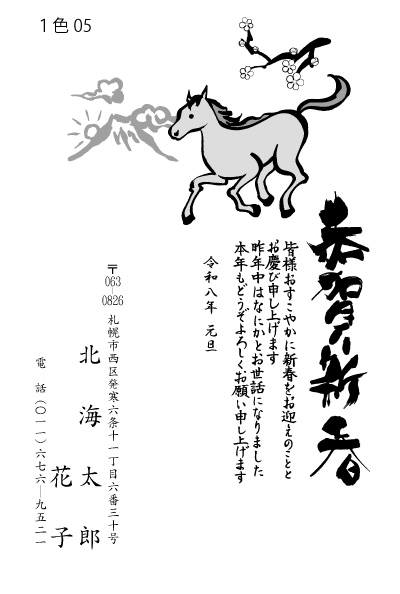 1色05
恭賀新春
皆様おすこやかに新春をお迎えのことと
お慶び申し上げます
昨年中はなにかとお世話になりました
本年もどうぞよろしくお願い申し上げます
令和八年 元旦
〒063-0826
札幌市西区発寒六条十一丁目六番三十号
北海太郎
花子
電話(〇一一)六七六―九五二一